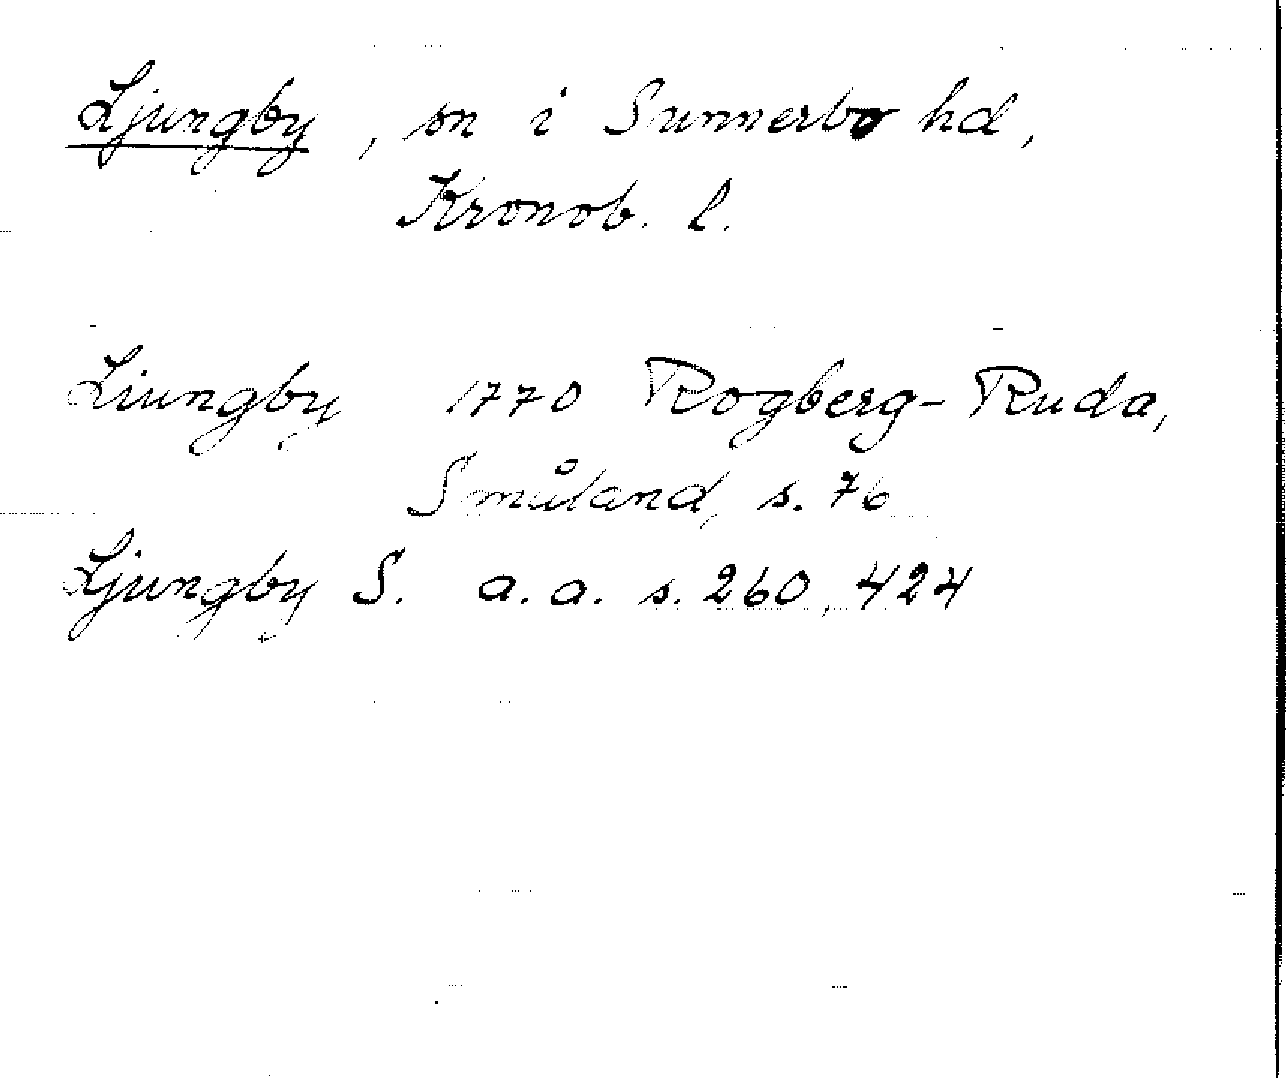 Ljungby, sn i Sunnerbo hd,
Kronob. l.
Liungby 1770 Rogberg-Ruda,
Småland, s. 76
Ljungby S. a.a. s. 260, 424